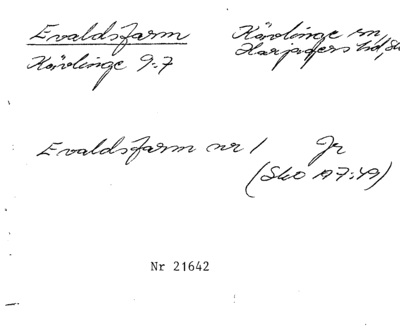 Evaldsfarm
Kävlinge sn,
Kävlinge 9:7
Harjagers hd, Sk
Evaldsfarm nr 1 Jr
(SkO A7:49)
Nr 21642